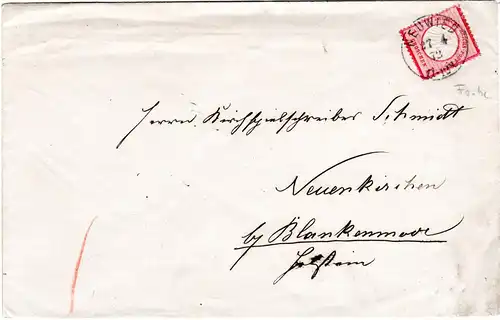 NEUWIED
27 4
72
Herrn Kirchspielschreiber Schmidt
Neuenkirchen
by Blankenmoor
Holstein